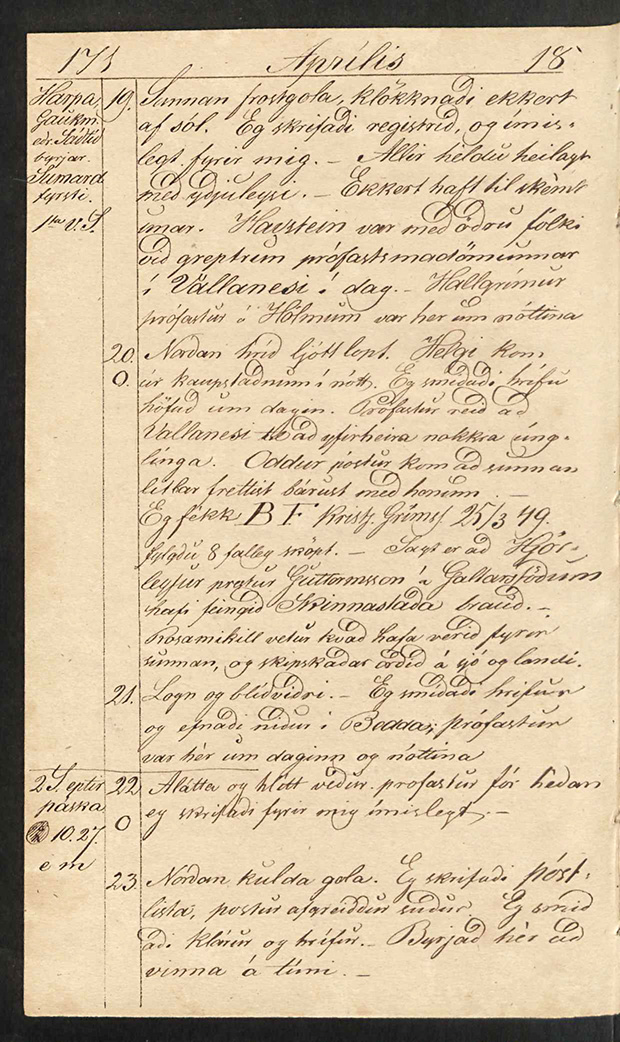 171 Aprílis 18
Harpa,
Gaukm
edr Sáðtíð
byrjar.
Sumard
fyrsti.
19. Sunnan frostgola, klökknaði ekkert
af sól. Eg skrifaði registrið, og ímis-
legt fyrir mig. – Allir héldu heilagt
með yðjuleysi. – Ekkert haft til skémt
unar. Havstein var með öðru fólki
við greptrun prófastsmadömunnar
í Vallanesi í dag. – Hallgrímur
prófastur á Hólmum var hér um nóttina
20. Norðan hríð ljótt lopt. Helgi kom
O. úr kaupstaðnum í nótt. Eg smíðaði hrífu
höfuð um dagin. Prófastur reið að
Vallanesi að yfirheira nokkra úng-
línga. Oddur póstur kom að sunnan
litlar frettist bárust með honum. –
Eg fékk B F Kristj. Gríms 25/3 49.
fylgdu 8 falleg sköpt. – Sagt er að Hjör-
leyfur prestur Guttormsson á Gallastöðum
hafi feingið Skinnastaða brauð. –
Rosamikill vetur kvað hafa verið fyrir
sunnan, og skipskaðar orðið á sjó og landi.
21. Logn og blíðviðri. – Eg smíðaði hrífur
og efnaði niður í Bedda; prófastur
var hér um daginn og nóttina
2 S. eptir
páska
10.27.
e m
22 Alátta og hlítt veður. profastur fór héðan
O eg skrifaði fyrir mig ímislegt. –
23. Norðan kulda gola. Eg skrifaði póst-
lista, postur afgreiddur suður. Eg smíð
aði klárur og hrífur. – Byrjað hér að
vinna á túni. –